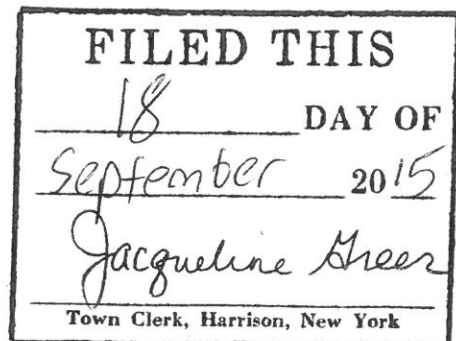 FILED THIS
18 DAY OF
September 2015
Jacqueline Greer
Town Clerk, Harrison, New York